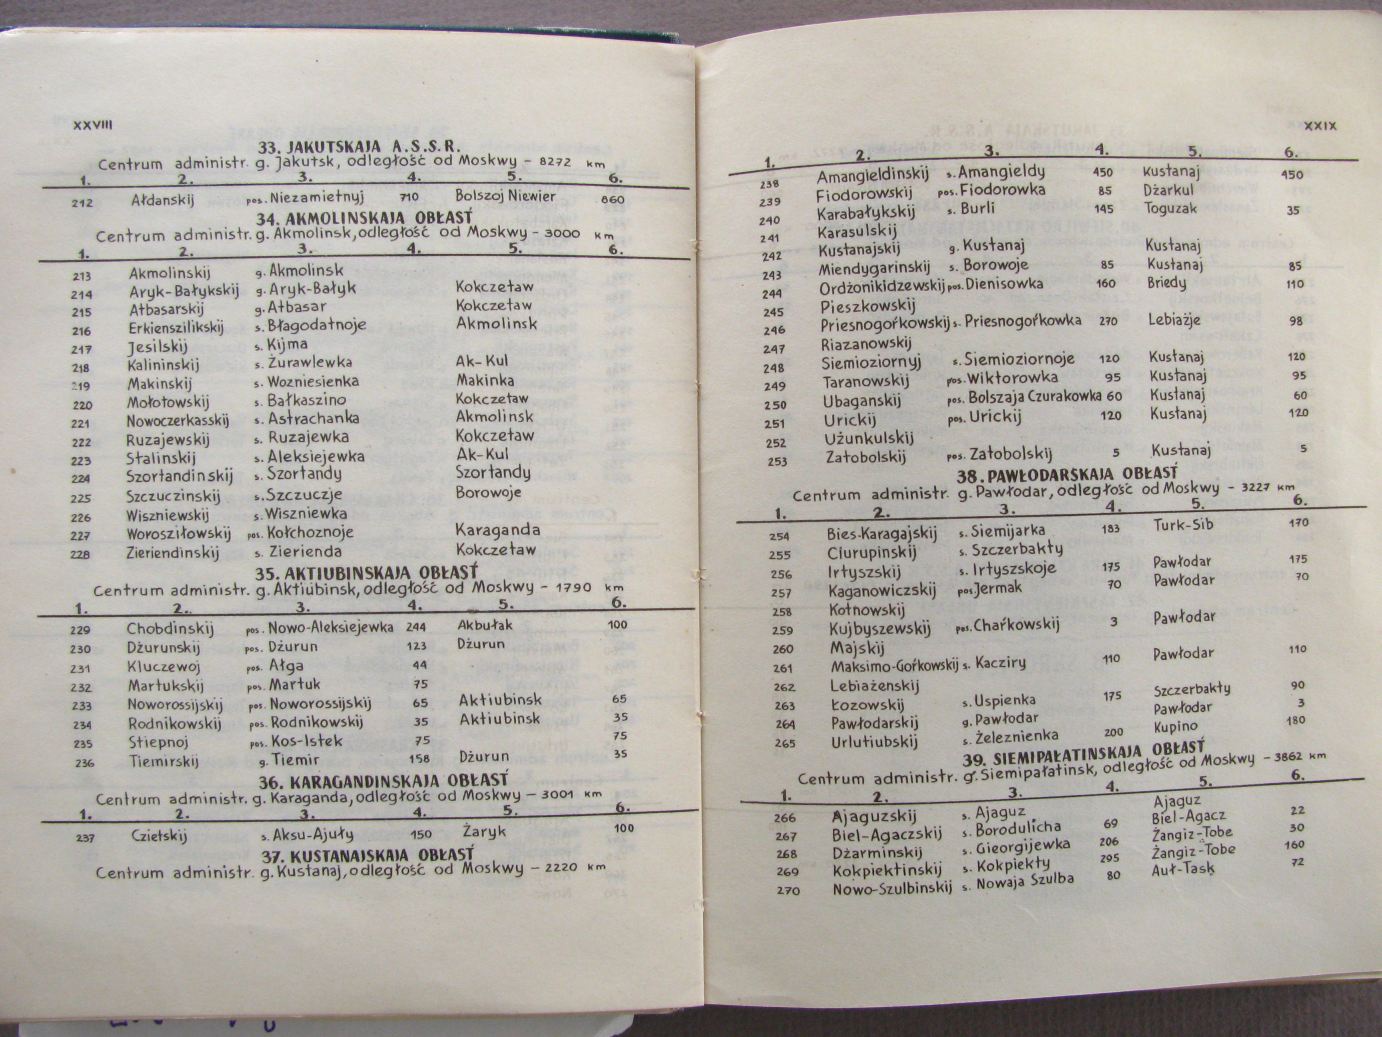 XXVIII
33. JAKUTSKAJA A.S.S.R.
Centrum administr. g. Jakutsk, odległość od Moskwy – 8272 km
1. 2. 3. 4. 5. 6.
212 Ałdanskij pos. Niezamietnyj 710 Bolszoj Niewier 860
34. AKMOLINSKAJA OBŁAST́
Centrum administr. g. Akmolinsk, odległość od Moskwy – 3000 km
1. 2. 3. 4. 5. 6.
213 Akmolinskij g. Akmolinsk
214 Aryk-Bałykskij g. Aryk-Bałyk Kokczetaw
215 Atbasarskij g. Atbasar Kokczetaw
216 Erkienszilikskij s. Błagodatnoje Akmolinsk
217 Jesilskij s. Kijma
218 Kalininskij s. Żurawlewka Ak-Kul
219 Makinskij s. Wozniesienka Makinka
220 Mołotowskij s. Bałkaszino Kokczetaw
221 Nowoczerkasskij s. Astrachanka Akmolinsk
222 Ruzajewskij s. Ruzajewka Kokczetaw
223 Stalinskij s. Aleksiejewka Ak-Kul
224 Szortandinskij s. Szortandy Szortandy
225 Szczuczinskij s. Szczuczje Borowoje
226 Wiszniewskij s. Wiszniewka
227 Worosziłowskij pos. Kołchoznoje Karaganda
228 Zieriendinskij s. Zierienda Kokczetaw
35. AKTIUBINSKAJA OBŁAST́
Centrum administr. g. Aktiubinsk, odległość od Moskwy – 1790 km
1. 2. 3. 4. 5. 6.
229 Chobdinskij pos. Nowo-Aleksiejewka 244 Akbułak 100
230 Dżurunskij pos. Dżurun 123 Dżurun
231 Kluczewoj pos. Ałga 44
232 Martukskij pos. Martuk 75
233 Noworossijskij pos. Noworossijskij 65 Aktiubinsk 65
234 Rodnikowskij pos. Rodnikowskij 35 Aktiubinsk 35
235 Stiepnoj pos. Kos-Istek 75 75
236 Tiemirskij g. Tiemir 158 Dżurun 35
36. KARAGANDINSKAJA OBŁAST́
Centrum administr. g. Karaganda, odległość od Moskwy – 3001 km
1. 2. 3. 4. 5. 6.
237 Czietskij s. Aksu-Ajuły 150 Żaryk 100
37. KUSTANAJSKAJA OBŁAST́
Centrum administr. g. Kustanaj, odległość od Moskwy – 2220 km
XXIX
1. 2. 3. 4. 5. 6.
238 Amangieldinskij s. Amangieldy 450 Kustanaj 450
239 Fiodorowskij pos. Fiodorowka 85 Dżarkul
240 Karabałykskij s. Burli 145 Toguzak 35
241 Karasulskij
242 Kustanajskij g. Kustanaj Kustanaj
243 Miendygarinskij s. Borowoje 85 Kustanaj 85
244 Ordżonikidzewskij pos. Dienisowka 160 Briedy 110
245 Pieszkowskij
246 Priesnogoŕkowskij s. Priesnogoŕkowka 270 Lebiażje 98
247 Riazanowskij
248 Siemioziornyj s. Siemioziornoje 120 Kustanaj 120
249 Taranowskij pos. Wiktorowka 95 Kustanaj 95
250 Ubaganskij pos. Bolszaja Czurakowka 60 Kustanaj 60
251 Urickij pos. Urickij 120 Kustanaj 120
252 Użunkulskij
253 Zatobolskij pos. Zatobolskij 5 Kustanaj 5
38. PAWŁODARSKAJA OBŁAST́
Centrum administr. g. Pawłodar, odległość od Moskwy – 3227 km
1. 2. 3. 4. 5. 6.
254 Bies-Karagajskij s. Siemijarka 183 Turk-Sib 170
255 Ciurupinskij s. Szczerbakty
256 Irtyszskij s. Irtyszskoje 175 Pawłodar 175
257 Kaganowiczskij pos. Jermak 70 Pawłodar 70
258 Kotnowskij
259 Kujbyszewskij pos. Chaŕkowskij 3 Pawłodar
260 Majskij
261 Maksimo-Goŕkowskij s. Kacziry 110 Pawłodar 110
262 Lebiażenskij
263 Łozowskij s. Uspienka 175 Szczerbakty 90
264 Pawłodarskij g. Pawłodar Pawłodar 3
265 Urlutiubskij s. Żeleznienka 200 Kupino 180
39. SIEMIPAŁATINSKAJA OBŁAST́
Centrum administr. g. Siemipałatinsk, odległość od Moskwy – 3862 km
1. 2. 3. 4. 5. 6.
266 Ajaguzskij s. Ajaguz Ajaguz
267 Biel-Agaczskij s. Borodulicha 69 Biel-Agacz 22
268 Dżarminskij s. Gieorgijewka 206 Żangiz-Tobe 30
269 Kokpiektinskij s. Kokpiekty 295 Żangiz-Tobe 160
270 Nowo-Szulbinskij s. Nowaja Szulba 80 Auł-Task 72